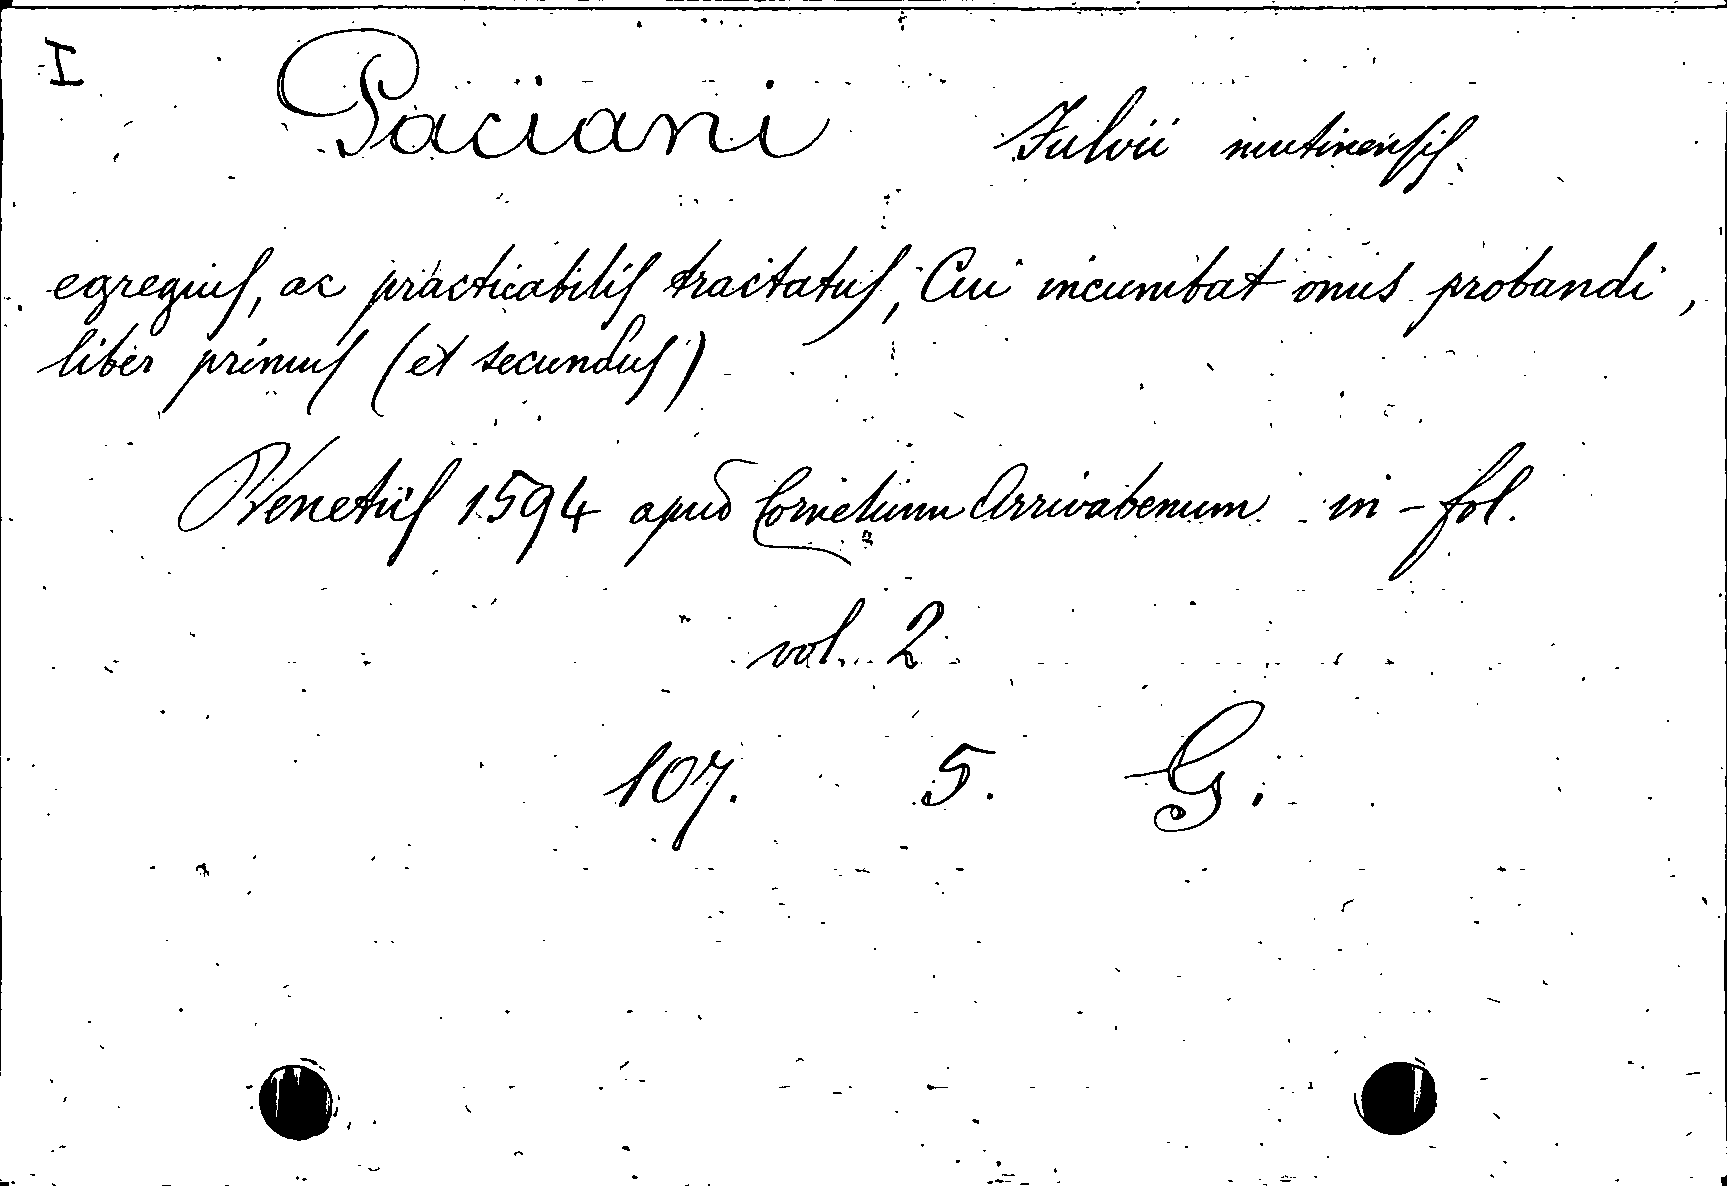 I
Paciani Fulvii mutinensis
egregius, ac practicabilis tractatus, Cui incumbat onus probandi,
liber primus (et secundus)
Venetiis 1594 apud Cornelium Arrivabenum in-fol.
vol. 2
107. 5. G.